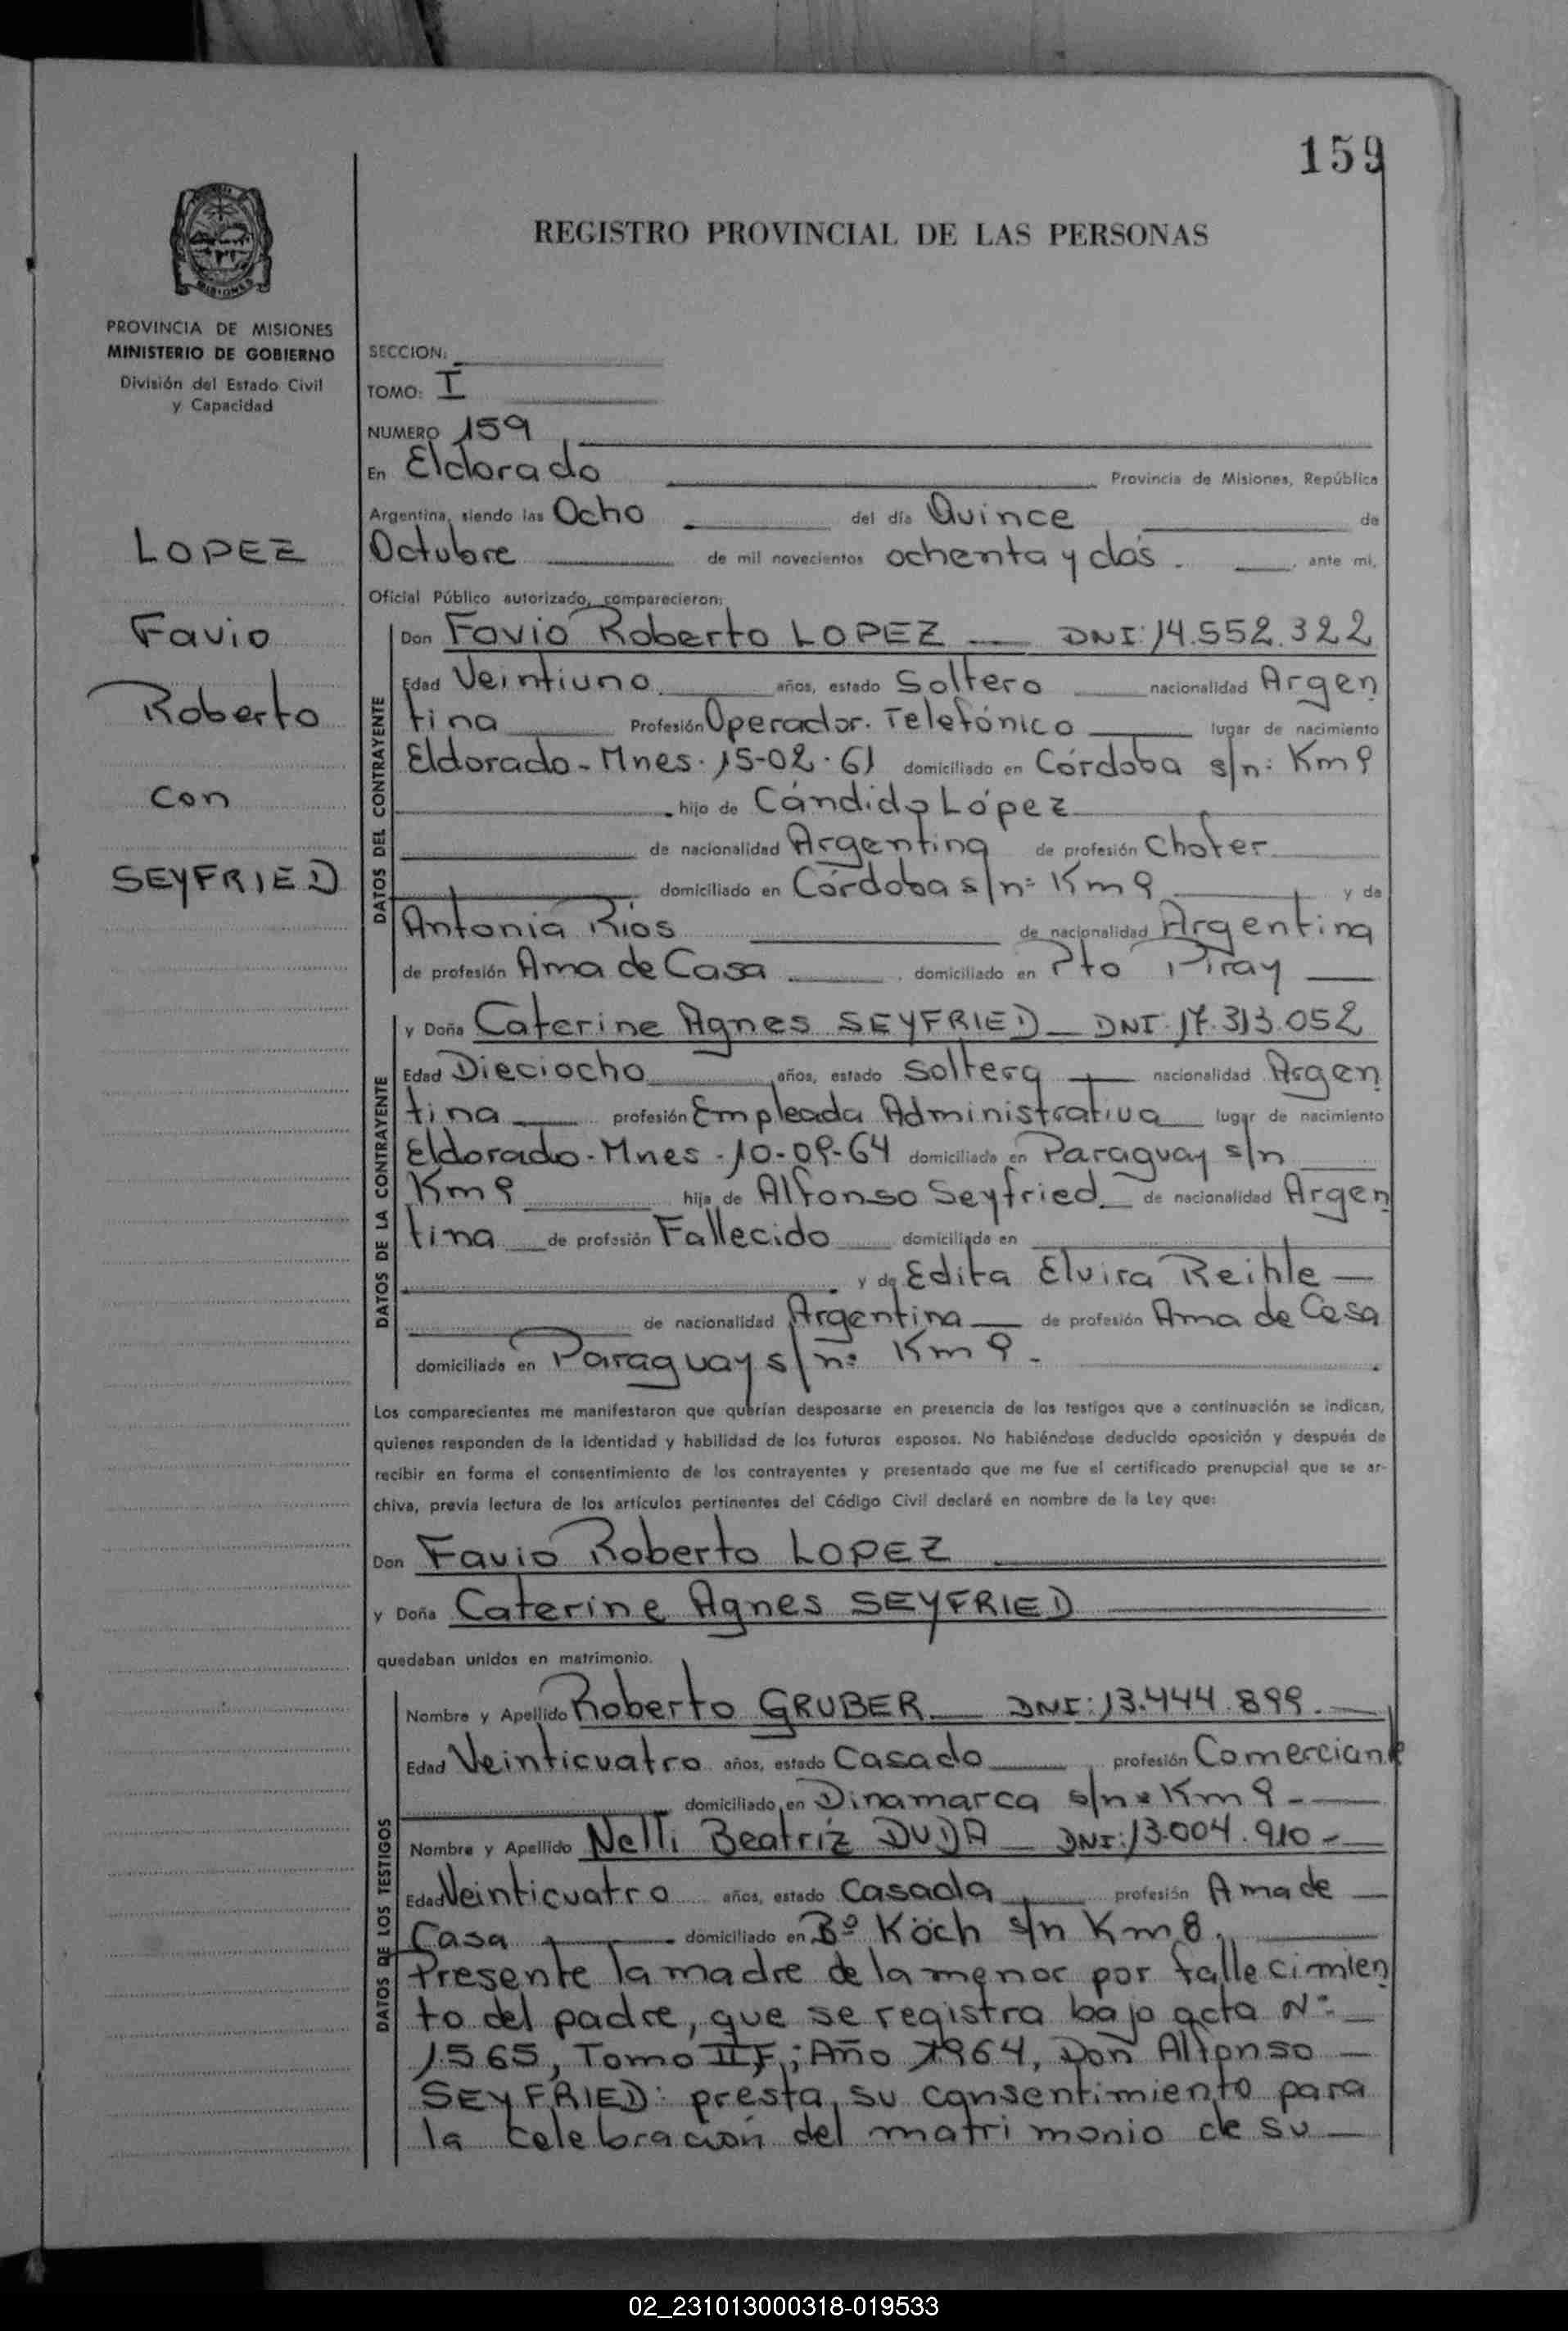 159
REGISTRO PROVINCIAL DE LAS PERSONAS
MISIONES
PROVINCIA DE MISIONES
MINISTERIO DE GOBIERNO
División del Estado Civil
y Capacidad
LOPEZ
Favio
Roberto
con
SEYFRIED
SECCION:
TOMO: I
NUMERO 159
En Eldorado Provincia de Misiones, República
Argentina, siendo las Ocho del día Quince de
Octubre de mil novecientos ochenta y dos. ante mi,
Oficial Público autorizado, comparecieron:
DATOS DEL CONTRAYENTE
Don Favio Roberto LOPEZ — DNI: 14.552.322
Edad Veintiuno años, estado Soltero nacionalidad Argen
tina Profesión Operador. Telefónico lugar de nacimiento
Eldorado - Mnes. 15-02-61 domiciliado en Córdoba s/n: Km 9
hijo de Cándido López
de nacionalidad Argentina de profesión Chofer
domiciliado en Córdoba s/nº Km 9 y de
Antonia Ríos de nacionalidad Argentina
de profesión Ama de Casa domiciliado en Pto Piray
DATOS DE LA CONTRAYENTE
y Doña Caterine Agnes SEYFRIED — DNI. 17.313.052
Edad Dieciocho años, estado Soltera nacionalidad Argen
tina profesión Empleada Administrativa lugar de nacimiento
Eldorado - Mnes - 10-09-64 domiciliada en Paraguay s/n
Km 9 hija de Alfonso Seyfried de nacionalidad Argen
tina de profesión Fallecido domiciliada en
y de Edita Elvira Reihle —
de nacionalidad Argentina de profesión Ama de Casa
domiciliada en Paraguay s/nº Km 9.
Los comparecientes me manifestaron que querían desposarse en presencia de los testigos que a continuación se indican,
quienes responden de la identidad y habilidad de los futuros esposos. No habiéndose deducido oposición y después de
recibir en forma el consentimiento de los contrayentes y presentado que me fue el certificado prenupcial que se ar-
chiva, previa lectura de los artículos pertinentes del Código Civil declaré en nombre de la Ley que:
Don Favio Roberto LOPEZ
y Doña Caterine Agnes SEYFRIED
quedaban unidos en matrimonio.
DATOS DE LOS TESTIGOS
Nombre y Apellido Roberto GRUBER — DNI: 13.444.899.—
Edad Veinticuatro años, estado Casado profesión Comerciante
domiciliado en Dinamarca s/nº Km 9 -
Nombre y Apellido Nelli Beatríz DUDA — DNI: 13.004.910 -
Edad Veinticuatro años, estado Casada profesión Ama de —
Casa domiciliado en Bº Köch s/n Km 8.
Presente la madre de la menor por fallecimien
to del padre, que se registra bajo acta Nº —
1.565, Tomo II F.; Año 1964, Don Alfonso —
SEYFRIED: presta su consentimiento para
la celebración del matrimonio de su —
02_231013000318-019533